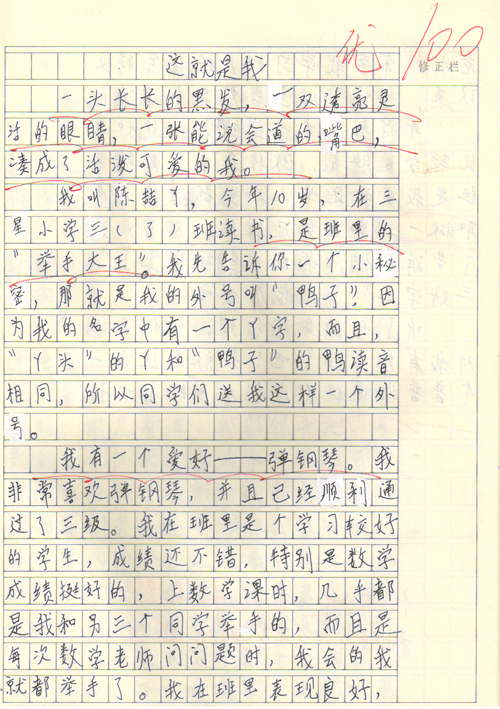 优 100
修正栏
这就是我
一头长长的黑发,一双漂亮灵
活的眼睛,一张能说会道的嘴巴,
凑成了活泼可爱的我。
我叫陈喆丫,今年10岁,在三
星小学三(了)班读书,是班里的
“举手大王”。我先告诉你一个小秘
密,那就是我的外号叫“鸭子”!因
为我的名字中有一个丫字,而且,
“丫头”的丫和“鸭子”的鸭读音
相同,所以同学们送我这样一个外
号。
我有一个爱好——弹钢琴。我
非常喜欢弹钢琴,并且已经顺利通
过了三级。我在班里是个学习较好
的学生,成绩还不错,特别是数学
成绩挺好的,上数学课时,几乎都
是我和另三个同学举手的,而且是
每次数学老师问问题时,我会的我
就都举手了。我在班里表现良好,